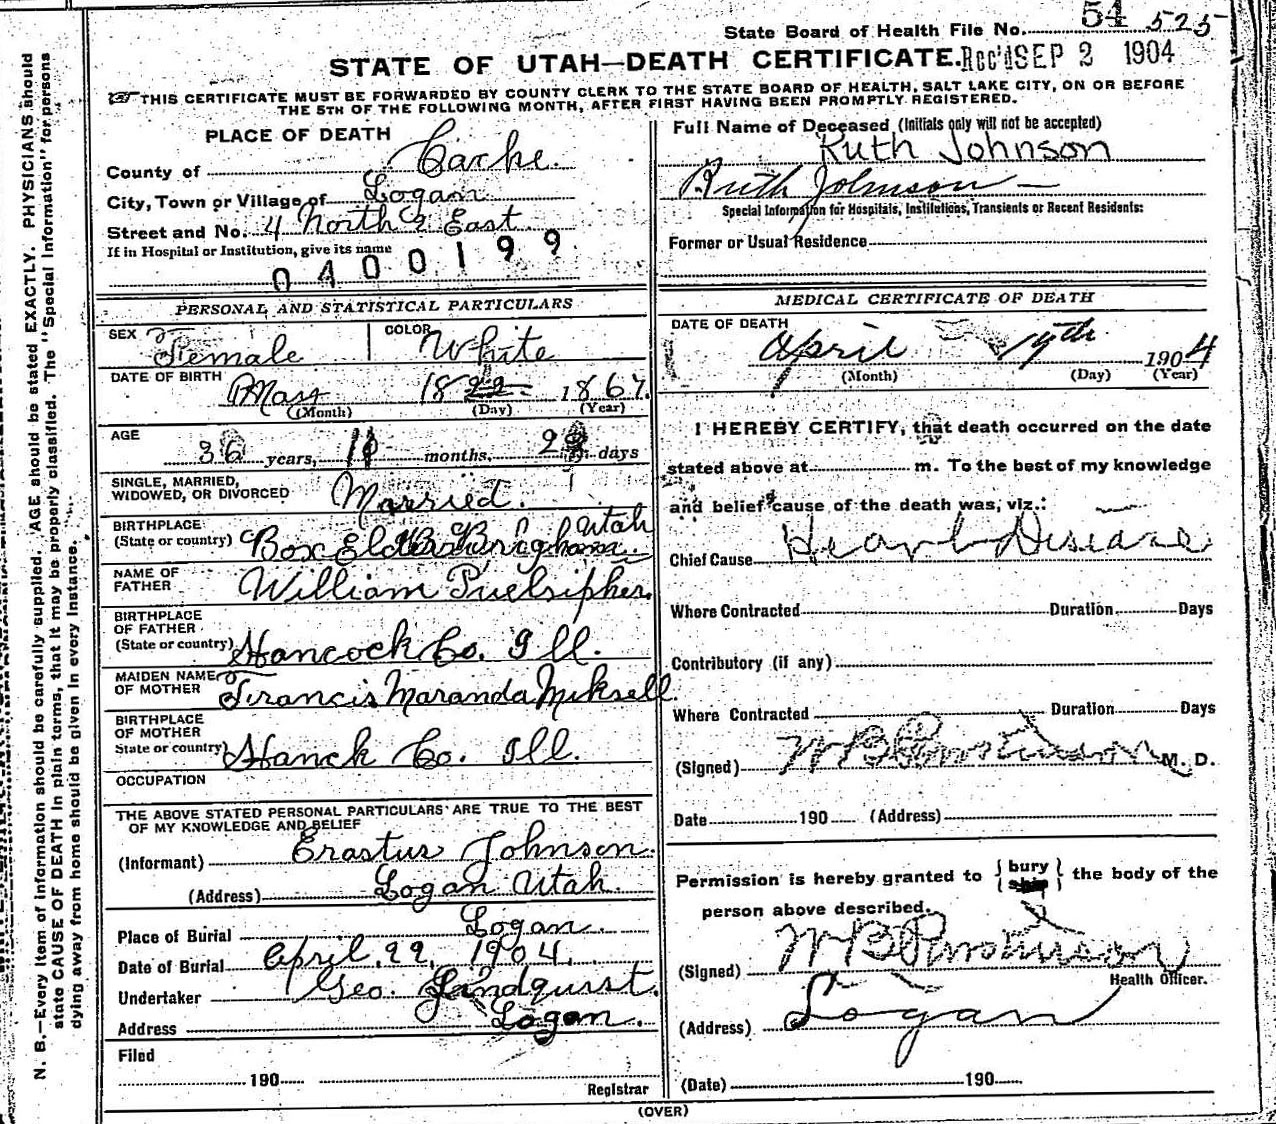 State Board of Health File No. 54 525
STATE OF UTAH—DEATH CERTIFICATE. Rec'd SEP 2 1904
THIS CERTIFICATE MUST BE FORWARDED BY COUNTY CLERK TO THE STATE BOARD OF HEALTH, SALT LAKE CITY, ON OR BEFORE
THE 5TH OF THE FOLLOWING MONTH, AFTER FIRST HAVING BEEN PROMPTLY REGISTERED.
N. B.—Every item of information should be carefully supplied. AGE should be stated EXACTLY. PHYSICIANS should
state CAUSE OF DEATH in plain terms, that it may be properly classified. The "Special Information" for persons
dying away from home should be given in every instance.
PLACE OF DEATH
County of Cache.
City, Town or Village of Logan
Street and No. 4 North & East
If in Hospital or Institution, give its name
0400199
PERSONAL AND STATISTICAL PARTICULARS
SEX Female COLOR White
DATE OF BIRTH 18 22 1867.
(Month) (Day) (Year)
AGE 36 years, months, days
SINGLE, MARRIED,
WIDOWED, OR DIVORCED Married.
BIRTHPLACE Utah
(State or country) Box Elder Brigham.
NAME OF
FATHER William Puelsipher.
BIRTHPLACE
OF FATHER
(State or country) Hancock Co. Ill.
MAIDEN NAME
OF MOTHER Francis Maranda Miksell
BIRTHPLACE
OF MOTHER
State or country) Hanck Co. Ill.
OCCUPATION
THE ABOVE STATED PERSONAL PARTICULARS ARE TRUE TO THE BEST
OF MY KNOWLEDGE AND BELIEF
(Informant) Erastus Johnson.
(Address) Logan Utah.
Place of Burial Logan.
Date of Burial April, 22, 1904.
Undertaker Geo. Lindquist.
Address Logan.
Filed
190
Registrar
Full Name of Deceased (Initials only will not be accepted)
Ruth Johnson
Ruth Johnson
Special Information for Hospitals, Institutions, Transients or Recent Residents:
Former or Usual Residence
MEDICAL CERTIFICATE OF DEATH
DATE OF DEATH
April 1904
(Month) (Day) (Year)
I HEREBY CERTIFY, that death occurred on the date
stated above at m. To the best of my knowledge
and belief cause of the death was, viz.:
Chief Cause Heart Disease
Where Contracted Duration Days
Contributory (if any)
Where Contracted Duration Days
(Signed) W B M. D.
Date 190 (Address)
Permission is hereby granted to { bury } the body of the
{ ship }
person above described.
(Signed) W B
Health Officer.
(Address) Logan
(Date) 190
(OVER)